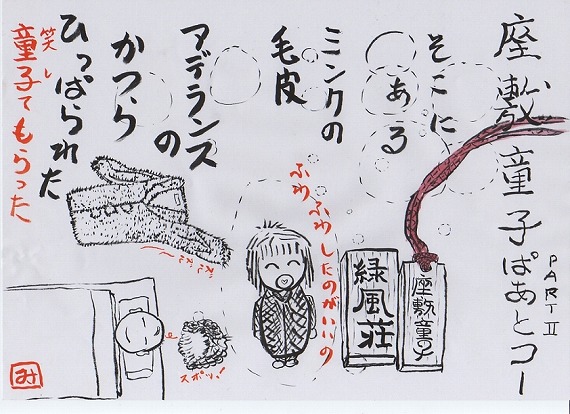 座敷童子ぱあとコー
PART II
そこに
ある
ミンクの
毛皮
アデランスの
かつら
ひっぱられた
笑し
童子てもらった
ふわふわしたのがいいの
座敷童子
緑風荘
スポッ!
み